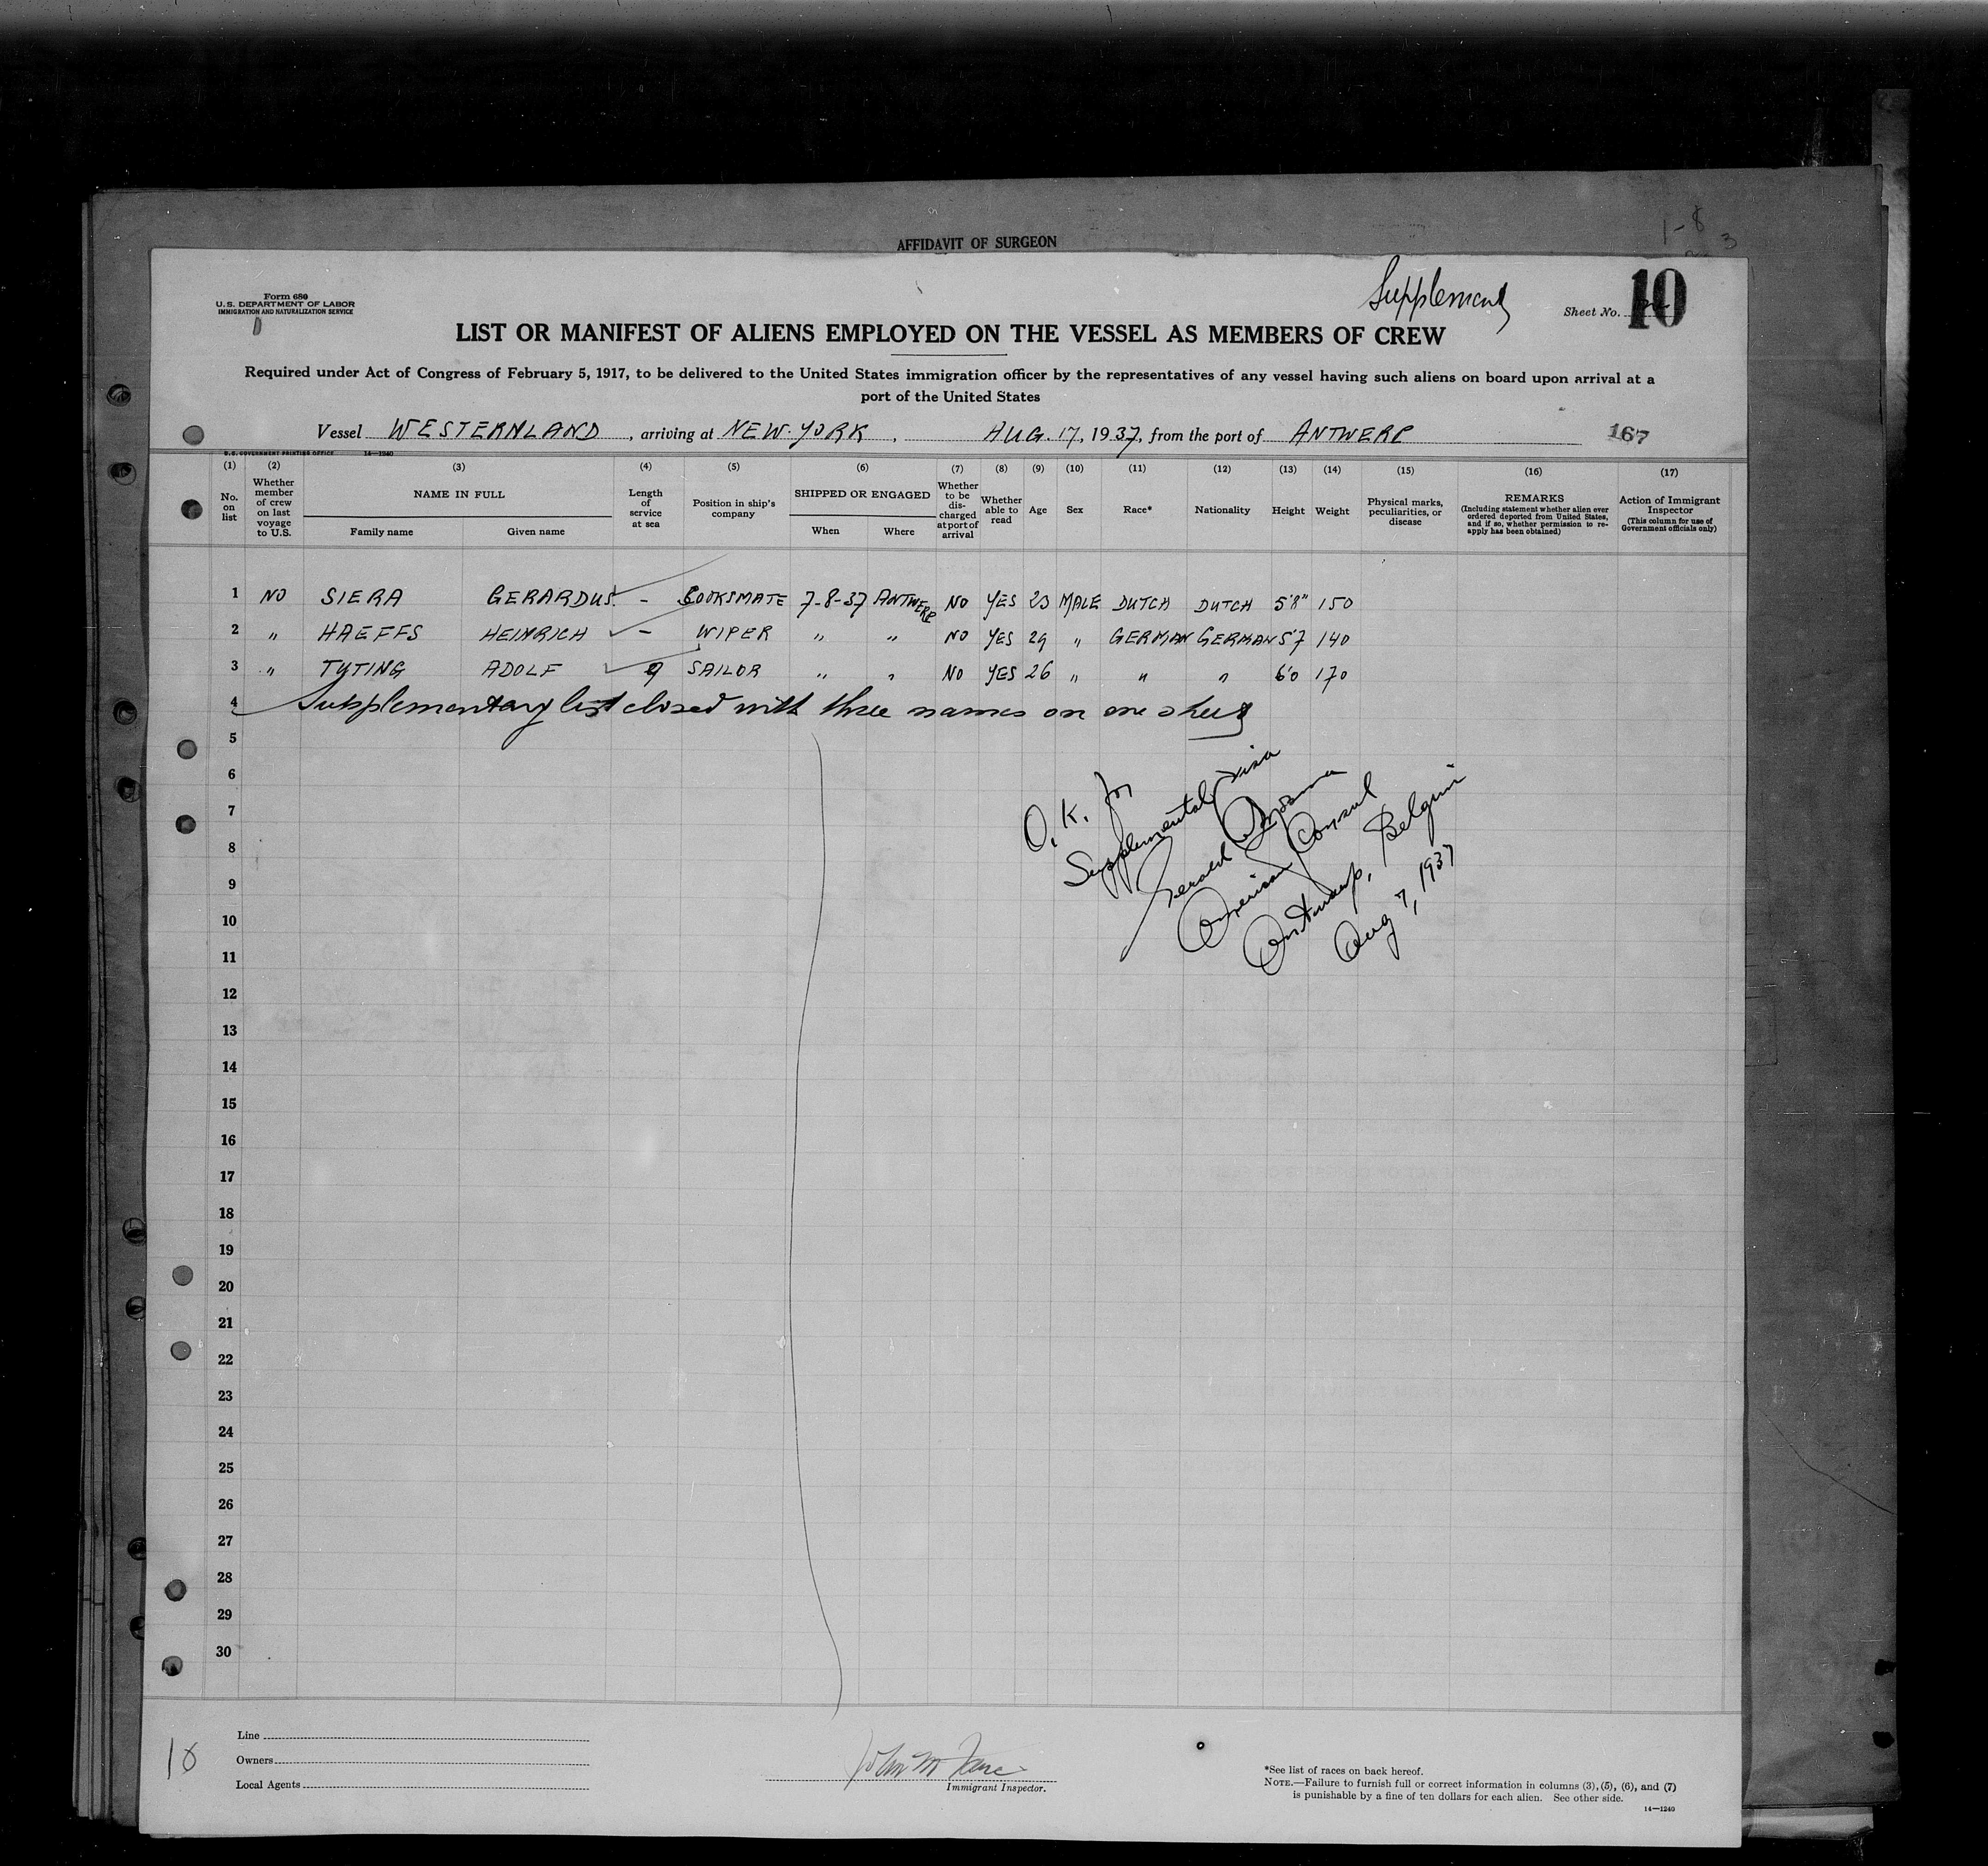 AFFIDAVIT OF SURGEON
1-8
3
Form 680
U.S. DEPARTMENT OF LABOR
IMMIGRATION AND NATURALIZATION SERVICE
Supplement
Sheet No.
10
LIST OR MANIFEST OF ALIENS EMPLOYED ON THE VESSEL AS MEMBERS OF CREW
Required under Act of Congress of February 5, 1917, to be delivered to the United States immigration officer by the representatives of any vessel having such aliens on board upon arrival at a
port of the United States
Vessel WESTERNLAND, arriving at NEW-YORK, AUG. 17, 1937, from the port of ANTWERP
167
U.S. GOVERNMENT PRINTING OFFICE 14—1240
(1) (2) (3) (4) (5) (6) (7) (8) (9) (10) (11) (12) (13) (14) (15) (16) (17)
No. on list
Whether member of crew on last voyage to U.S.
NAME IN FULL
Family name Given name
Length of service at sea
Position in ship's company
SHIPPED OR ENGAGED
When Where
Whether to be dis-charged at port of arrival
Whether able to read
Age
Sex
Race*
Nationality
Height
Weight
Physical marks, peculiarities, or disease
REMARKS
(Including statement whether alien ever ordered deported from United States, and if so, whether permission to re-apply has been obtained)
Action of Immigrant Inspector
(This column for use of Government officials only)
1 NO SIERA GERARDUS. - COOKSMATE 7-8-37 ANTWERP NO YES 23 MALE DUTCH DUTCH 5'8" 150
2 " HAEFFS HEINRICH - WIPER " " NO YES 29 " GERMAN GERMAN 5'7 140
3 " TYTING ADOLF 9 SAILOR " " NO YES 26 " " " 6'0 170
4 Supplementary list closed with three names on one sheet
5
6
7
8
9
10
11
12
13
14
15
16
17
18
19
20
21
22
23
24
25
26
27
28
29
30
O.K. for
Supplemental visa
Gerald
American Consul
Antwerp, Belgium
Aug 7, 1937
Line
Owners
Local Agents
10
John M
Immigrant Inspector.
*See list of races on back hereof.
NOTE.—Failure to furnish full or correct information in columns (3), (5), (6), and (7)
is punishable by a fine of ten dollars for each alien. See other side.
14—1240